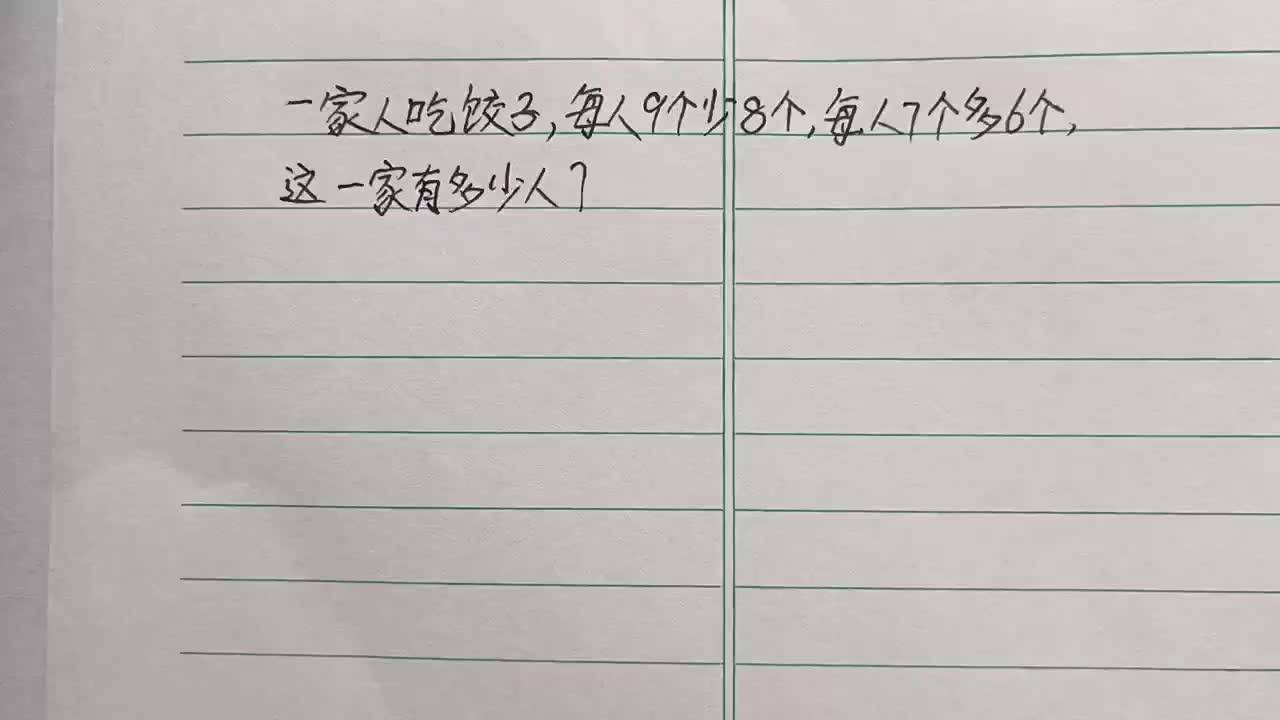 一家人吃饺子,每人9个少8个,每人7个多6个,
这一家有多少人?